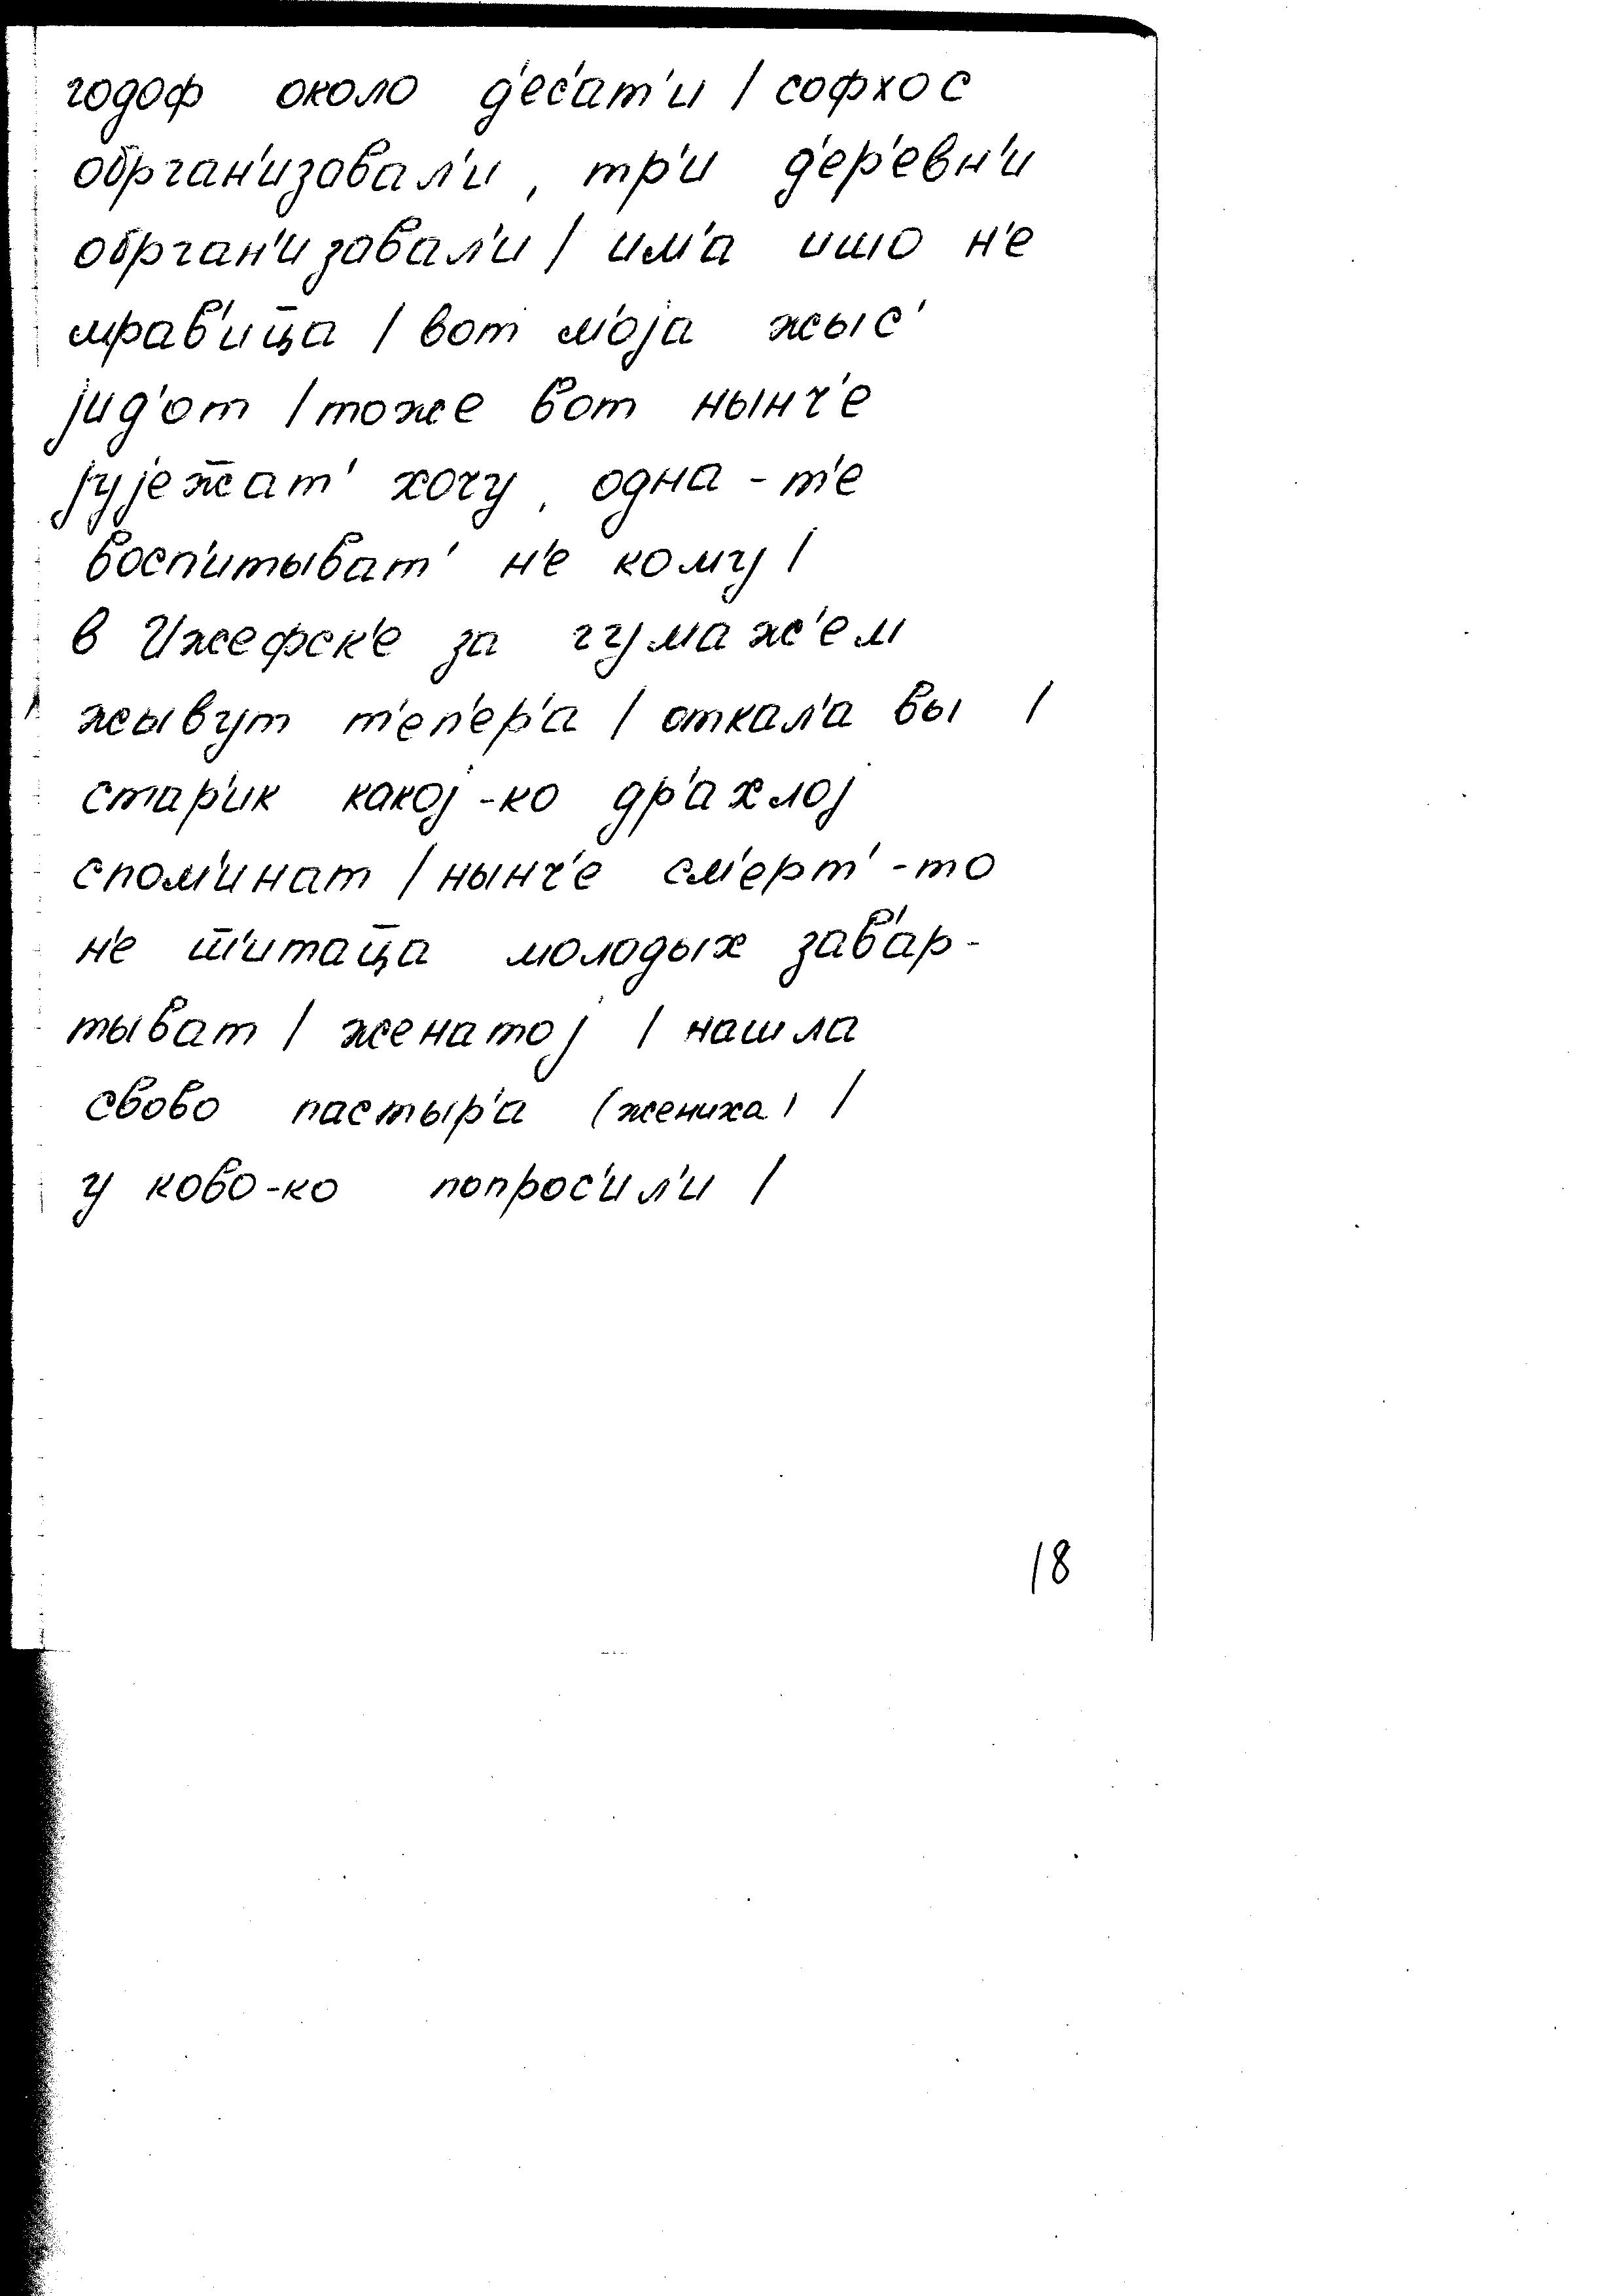 годоф около д'ес'ат'и / софхос
обрган'изовал'и, тр'и д'ер'евн'и
обрган'изовал'и / им'а ишо н'е
мрав'иц̄а / вот моjа жыс'
jид'от / тоже вот нынч'е
jуjеж̄ат' хочу, одна-т'е
восп'итыват' н'е кому /
в Ижефск'е за гумаж'ем
жывут т'еп'ер'а / откал'а вы /
стар'ик какоj-ко др'ахлоj
спом'инат / нынч'е см'ерт'-то
н'е ш̄'итац̄а молодых зав'ар-
тыват / женатоj / нашла
свово пастыр'а (жениха) /
у ково-ко попрос'ил'и /
18